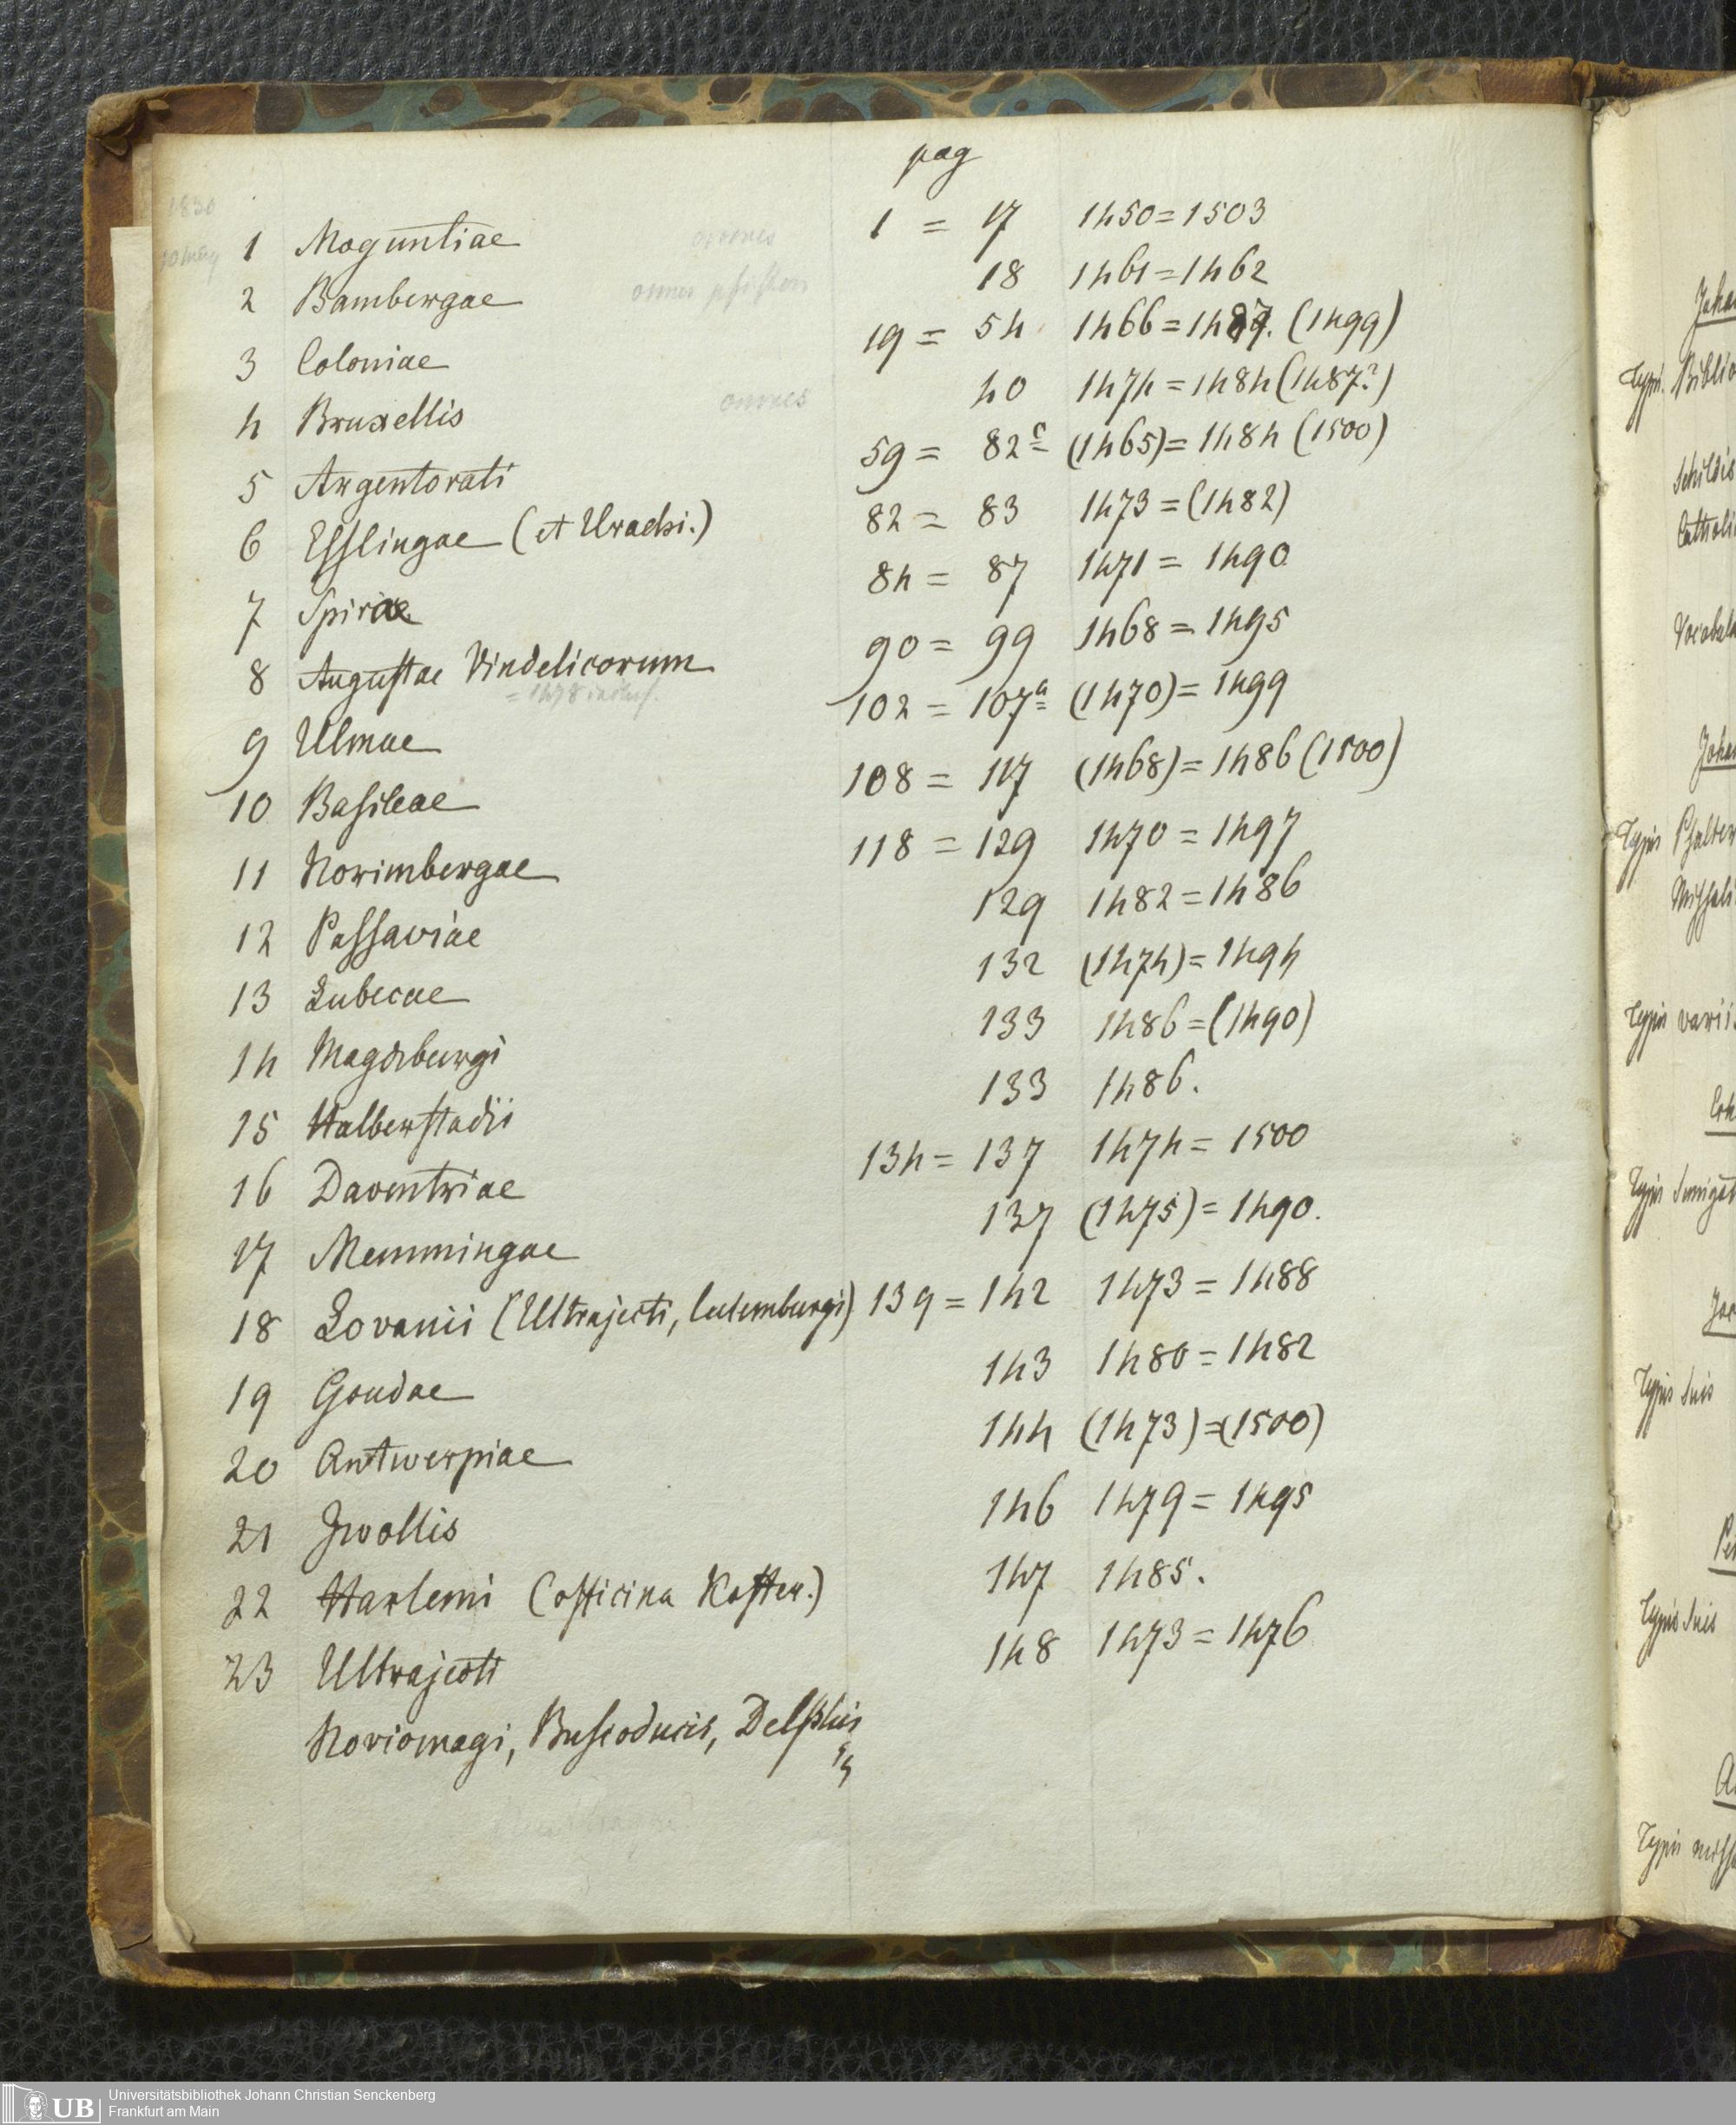 pag
1830
1 Moguntiae omnes 1 = 17 1450 = 1503
2 Bambergae omnes 18 1461 = 1462
3 Coloniae 19 = 54 1466 = 1489. (1499)
4 Bruxellis omnes 40 1474 = 1484 (1487?)
5 Argentorati 59 = 82c (1465) = 1484 (1500)
6 Esslingae (et Urachi.) 82 = 83 1473 = (1482)
7 Spirae 84 = 87 1471 = 1490
8 Augustae Vindelicorum 90 = 99 1468 = 1495
= 1478
9 Ulmae 102 = 107a (1470) = 1499
10 Basileae 108 = 117 (1468) = 1486 (1500)
11 Norimbergae 118 = 129 1470 = 1497
12 Passaviae 129 1482 = 1486
13 Lubecae 132 (1474) = 1494
14 Magdeburgi 133 1486 = (1490)
15 Halberstadii 133 1486.
16 Daventriae 134 = 137 1474 = 1500
17 Memmingae 137 (1475) = 1490.
18 Lovanii (Ultrajecti, Culemburgi) 139 = 142 1473 = 1488
19 Goudae 143 1480 = 1482
20 Antwerpiae 144 (1473) = (1500)
21 Zwollis 146 1479 = 1495
22 Harlemi (officina Koster.) 147 1485.
23 Ultrajecti 148 1473 = 1476
Noviomagi, Buscoducis, Delphis
Typis Biblio
Typis
Typis variis
Typis
Typis suis
Typis suis
Typis
UB Universitätsbibliothek Johann Christian Senckenberg
Frankfurt am Main